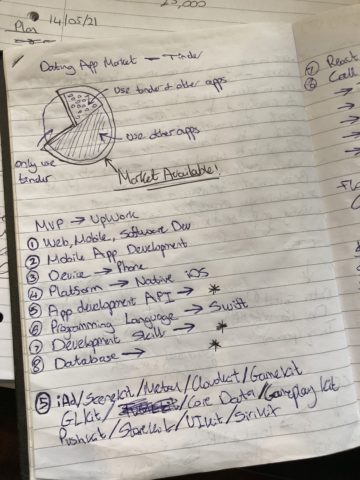 25,000
Plan 14/05/21
Dating App Market – Tinder
use tinder & other apps
use other apps
only use
tinder
Market Available!
MVP → UpWork
① Web, Mobile, Software Dev
② Mobile App Development
③ Device → Phone
④ Platform → Native iOS
⑤ App development API → *
⑥ Programming Language → Swift
⑦ Development Skill → *
⑧ Database → *
⑤ iAd/Scenekit/Metal/Cloudkit/Gamekit
GLKit/Core Data/Gameplay kit
Pushkit/Storekit/UIkit/Sirikit
⑦ React
⑧ Call